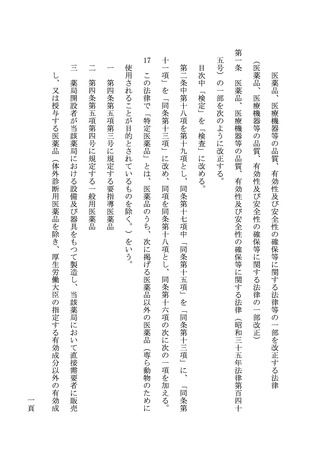 医薬品、医療機器等の品質、有効性及び安全性の確保等に関する法律等の一部を改正する法律
（医薬品、医療機器等の品質、有効性及び安全性の確保等に関する法律の一部改正）
第一条　医薬品、医療機器等の品質、有効性及び安全性の確保等に関する法律（昭和三十五年法律第百四十
五号）の一部を次のように改正する。
目次中「検定」を「検査」に改める。
第二条中第十八項を第十九項とし、同条第十七項中「同条第十五項」を「同条第十三項」に、「同条第
十一項」を「同条第十三項」に改め、同項を同条第十八項とし、同条第十六項の次に次の一項を加える。
17　この法律で「特定医薬品」とは、医薬品のうち、次に掲げる医薬品以外の医薬品（専ら動物のために
使用されることが目的とされているものを除く。）をいう。
一　第四条第五項第三号に規定する要指導医薬品
二　第四条第五項第四号に規定する一般用医薬品
三　薬局開設者が当該薬局における設備及び器具をもつて製造し、当該薬局において直接需要者に販売
し、又は授与する医薬品（体外診断用医薬品を除き、厚生労働大臣の指定する有効成分以外の有効成
一頁